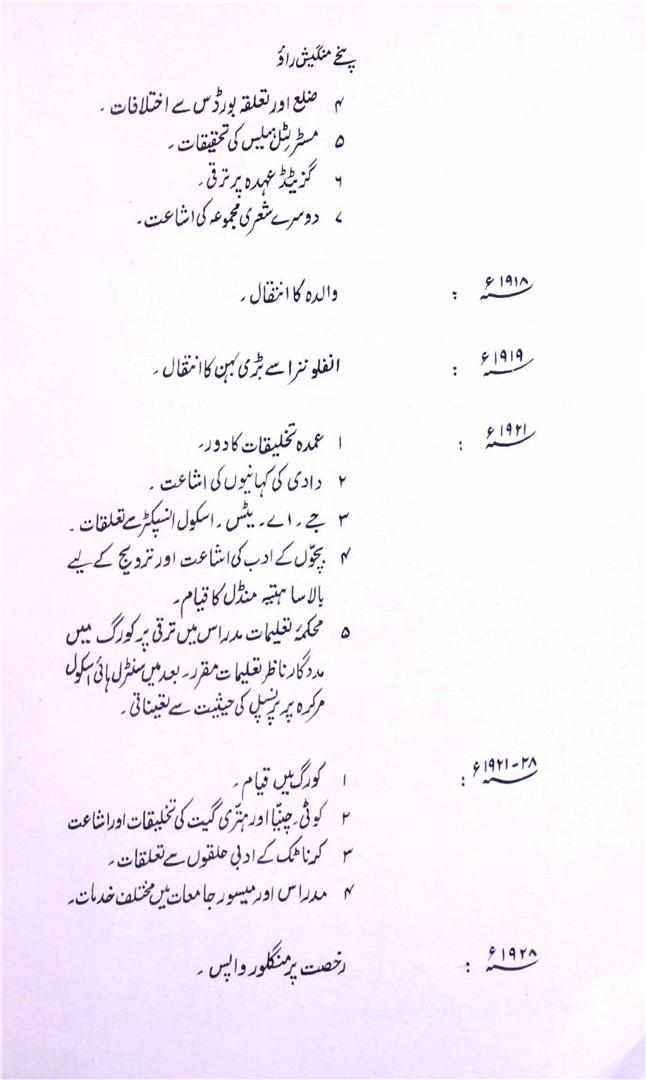 پنجے منگیش راؤ
۴ ضلع اور تعلقہ بورڈس سے اختلافات ۔
۵ مسٹر لٹل ہیلیس کی تحقیقات ۔
۶ گزیٹڈ عہدہ پر ترقی ۔
۷ دوسرے شعری مجموعہ کی اشاعت ۔
۱۹۱۸ء : والدہ کا انتقال ۔
۱۹۱۹ء : انفلوئنزا سے بڑی بہن کا انتقال ۔
۱۹۲۱ء : ۱ عمدہ تخلیقات کا دور ۔
۲ دادی کی کہانیوں کی اشاعت ۔
۳ جے ۔ اے ۔ ییٹس ۔ اسکول انسپکٹر سے تعلقات ۔
۴ بچّوں کے ادب کی اشاعت اور ترویج کے لیے
بالا ساہتیہ منڈل کا قیام ۔
۵ محکمۂ تعلیمات مدراس میں ترقی پر کورگ میں
مددگار ناظر تعلیمات مقرر ۔ بعد میں سنٹرل ہائی اسکول
مرکرہ پر پرنسپل کی حیثیت سے تعیناتی ۔
۱۹۲۱-۲۸ء : ۱ کورگ میں قیام ۔
۲ کوٹی چنیّا اور ہتّری گیت کی تخلیقات اور اشاعت
۳ کرناٹک کے ادبی حلقوں سے تعلقات ۔
۴ مدراس اور میسور جامعات میں مختلف خدمات ۔
۱۹۲۸ء : رخصت پر منگلور واپس ۔